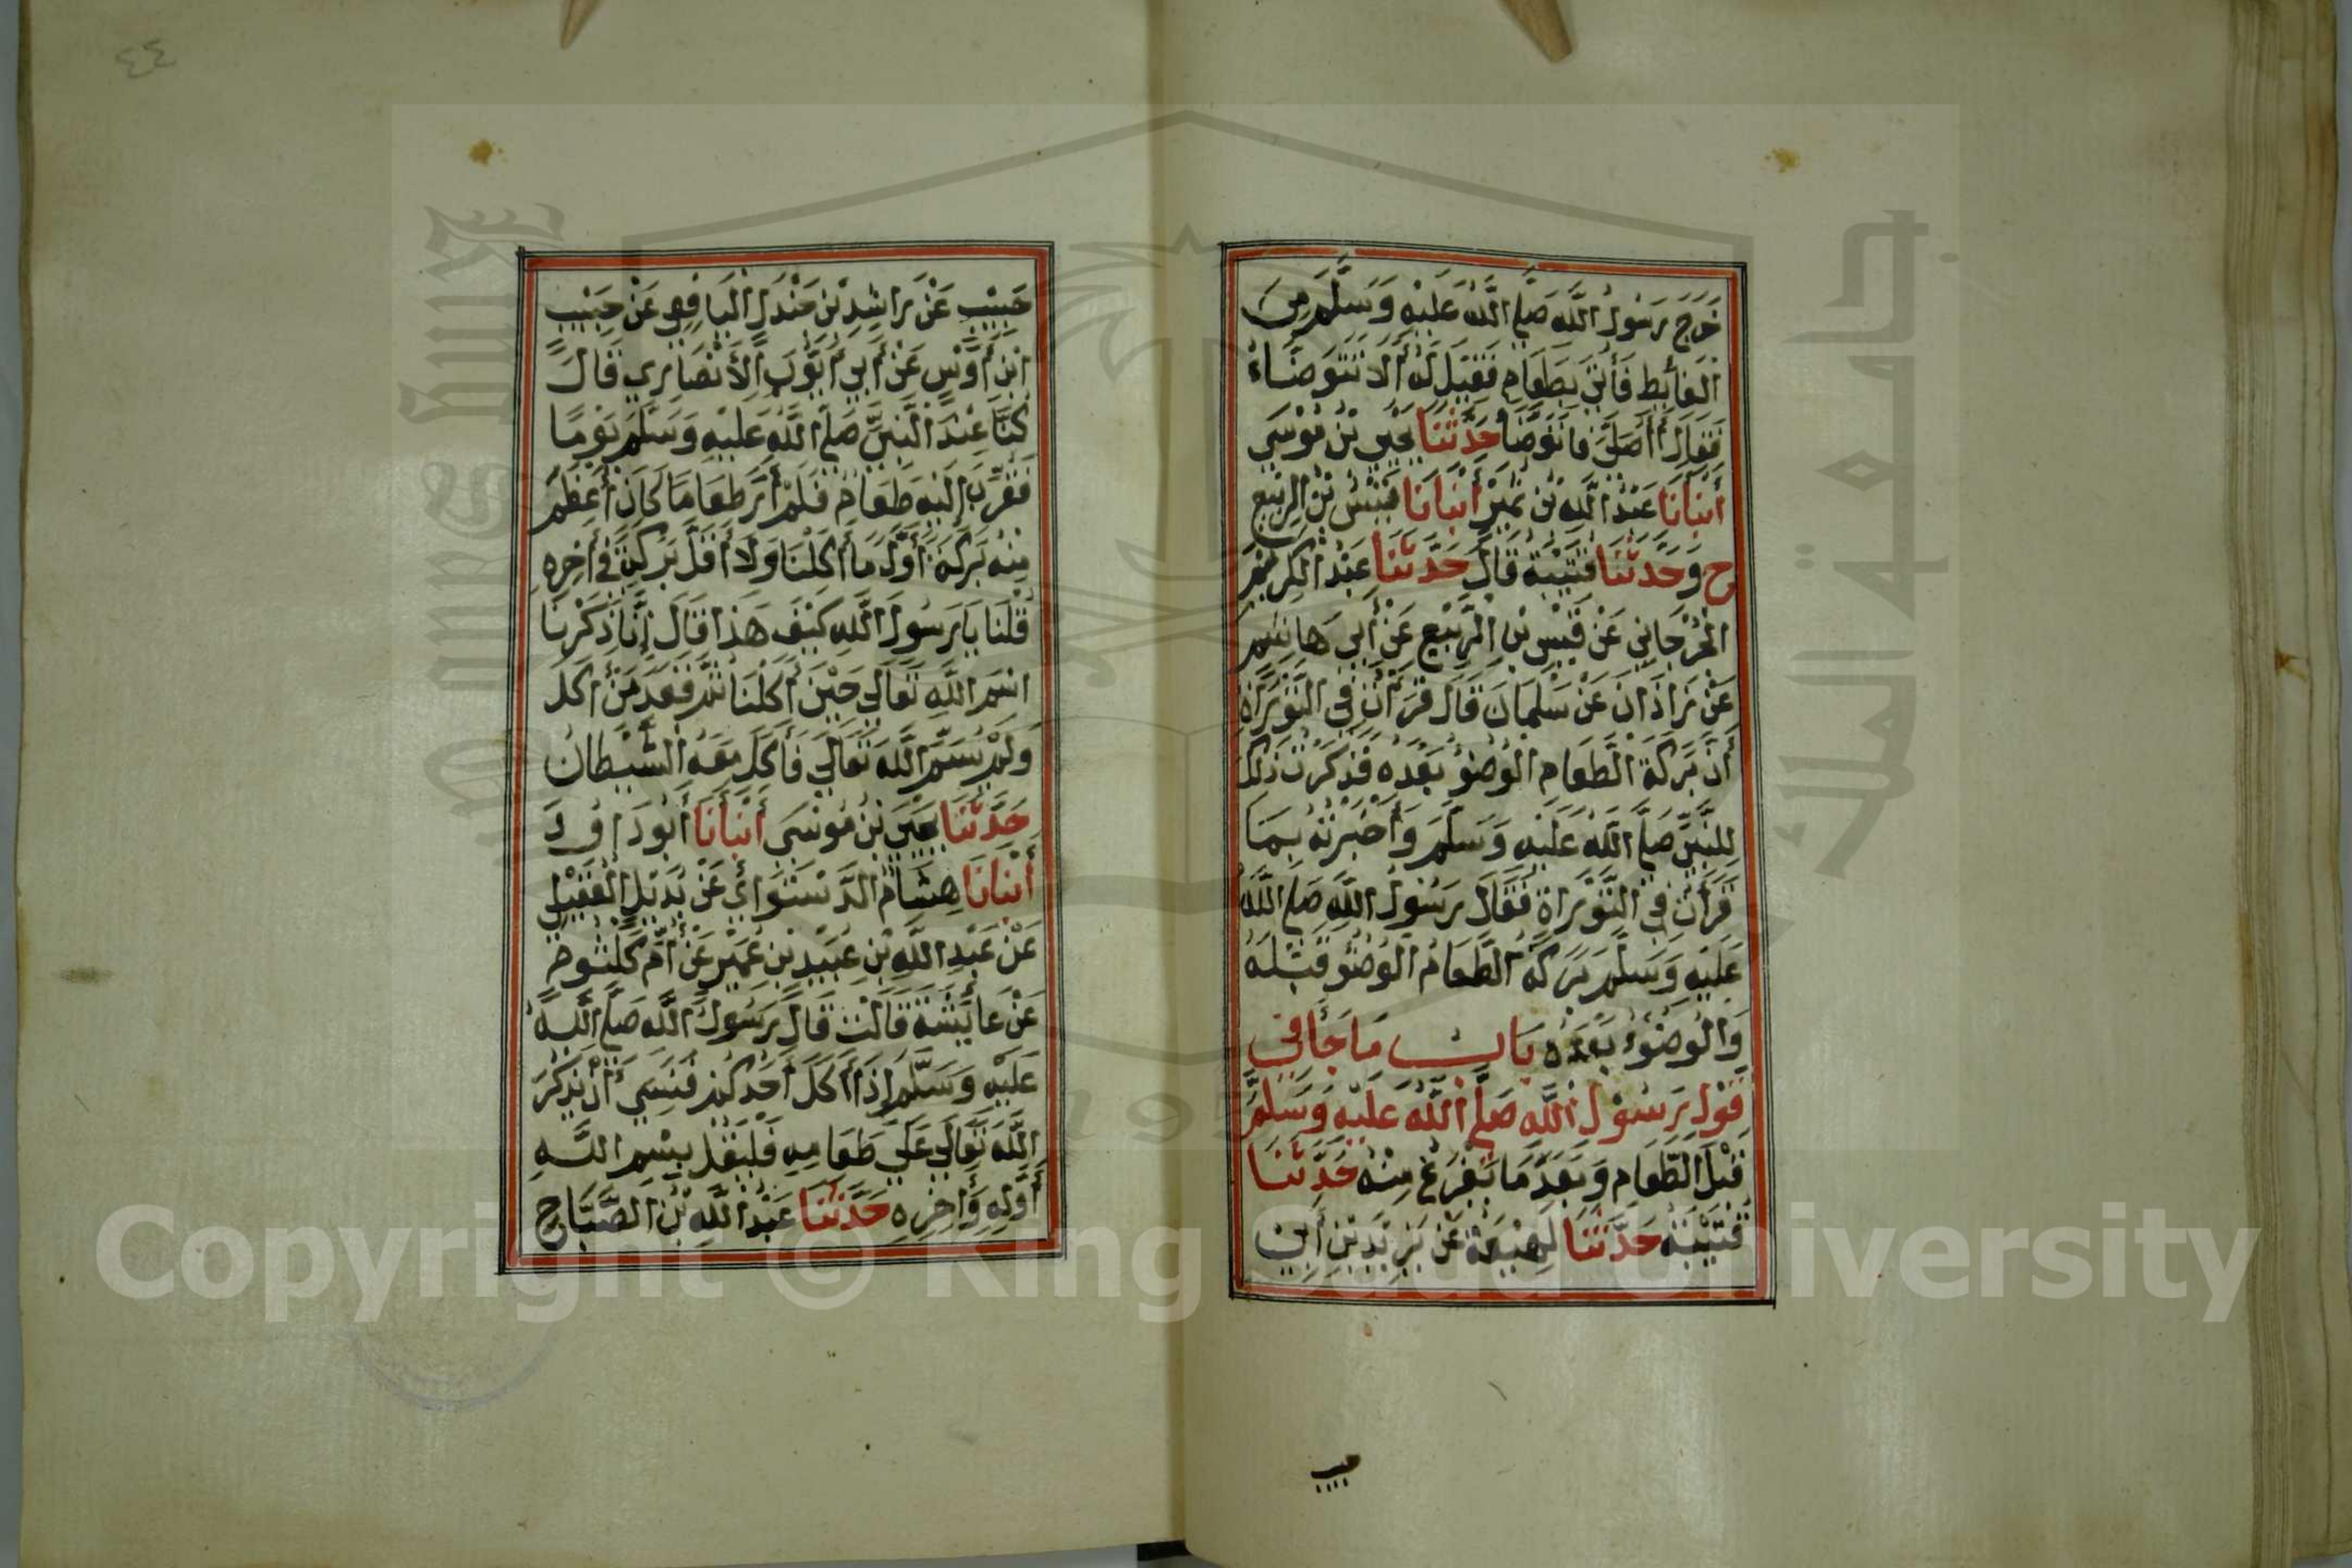 خَرَجَ رَسُولُ اللَّهِ صَلَّى اللَّهُ عَلَيْهِ وَسَلَّمَ مِنَ
الْغَائِطِ فَأُتِيَ بِطَعَامٍ فَقِيلَ لَهُ أَلَا تَتَوَضَّاءُ
فَقَالَ أَأُصَلِّي فَأَتَوَضَّأُ حَدَّثَنَا يَحْيَى بْنُ مُوسَى
أَنْبَأَنَا عَبْدُ اللَّهِ بْنُ نُمَيْرٍ أَنْبَأَنَا قَيْسُ بْنُ الرَّبِيعِ
ح وَحَدَّثَنَا قُتَيْبَةُ قَالَ حَدَّثَنَا عَبْدُ الْكَرِيمِ
الْجُرْجَانِي عَنْ قَيْسِ بْنِ الرَّبِيعِ عَنْ أَبِي هَاشِمٍ
عَنْ زَاذَانَ عَنْ سَلْمَانَ قَالَ قَرَأْتُ فِي التَّوْرَاةِ
أَنَّ بَرَكَةَ الطَّعَامِ الْوُضُوءُ بَعْدَهُ فَذَكَرْتُ ذَلِكَ
لِلنَّبِيِّ صَلَّى اللَّهُ عَلَيْهِ وَسَلَّمَ وَأَخْبَرْتُهُ بِمَا
قَرَأْتُ فِي التَّوْرَاةِ فَقَالَ رَسُولُ اللَّهِ صَلَّى اللَّهُ
عَلَيْهِ وَسَلَّمَ بَرَكَةُ الطَّعَامِ الْوُضُوءُ قَبْلَهُ
وَالْوُضُوءُ بَعْدَهُ بَابُ مَا جَا فِي
قَوْلِ رَسُولِ اللَّهِ صَلَّى اللَّهُ عَلَيْهِ وَسَلَّمَ
قَبْلَ الطَّعَامِ وَبَعْدَ مَا يَفْرُغُ مِنْهُ حَدَّثَنَا
قُتَيْبَةُ حَدَّثَنَا لَهِيعَةُ عَنْ يَزِيدَ بْنِ أَبِي
حبيب
٤٤
حَبِيبٍ عَنْ رَاشِدِ بْنِ جَنْدَلٍ الْيَافِعِي عَنْ حَبِيبِ
ابْنِ أَوْسٍ عَنْ أَبِي أَيُّوبَ الْأَنْصَارِي قَالَ
كُنَّا عِنْدَ النَّبِيِّ صَلَّى اللَّهُ عَلَيْهِ وَسَلَّمَ يَوْمًا
فَقُرِّبَ إِلَيْهِ طَعَامٌ فَلَمْ أَرَ طَعَامًا كَانَ أَعْظَمَ
مِنْهُ بَرَكَةً أَوَّلَ مَا أَكَلْنَا وَلَا أَقَلَّ بَرَكَةً فِي آخِرِهِ
قُلْنَا يَا رَسُولَ اللَّهِ كَيْفَ هَذَا قَالَ إِنَّا ذَكَرْنَا
اسْمَ اللَّهِ تَعَالَى حِيْنَ أَكَلْنَا ثُمَّ قَعَدَ مَنْ أَكَلَ
وَلَمْ يُسَمِّ اللَّهَ تَعَالَى فَأَكَلَ مَعَهُ الشَّيْطَانُ
حَدَّثَنَا يَحْيَى بْنُ مُوسَى أَنْبَأَنَا أَبُو دَاوُدَ
أَنْبَأَنَا هِشَامُ الدَّسْتَوَائِي عَنْ بُدَيْلٍ الْعُقَيْلِي
عَنْ عَبْدِ اللَّهِ بْنِ عُبَيْدِ بْنِ عُمَيْرٍ عَنْ أُمِّ كُلْثُومٍ
عَنْ عَايِشَةَ قَالَتْ قَالَ رَسُولُ اللَّهِ صَلَّى اللَّهُ
عَلَيْهِ وَسَلَّمَ إِذَا أَكَلَ أَحَدُكُمْ فَنَسِيَ أَنْ يَذْكُرَ
اللَّهَ تَعَالَى عَلَى طَعَامِهِ فَلْيَقُلْ بِسْمِ اللَّهِ
أَوَّلِهِ وَآخِرِهِ حَدَّثَنَا عَبْدُ اللَّهِ بْنُ الصَّبَّاحِ
جامعة الملك سعود
1957
Copyright © King Saud University